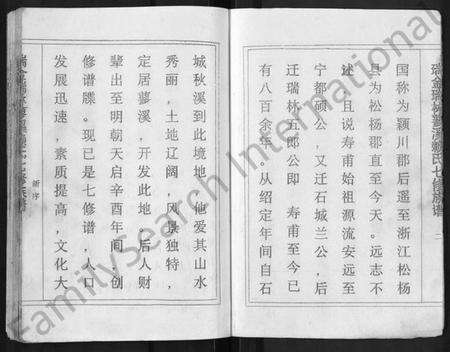 国称为颍川郡后遥至浙江松杨
县为松杨郡直至今天。远志不
述,且说寿甫始祖源流安远至
宁都硕公,又迁石城兰公,后
迁瑞林五郎公即 寿甫至今已
有八百余年,从绍定年间自石
城秋溪到此境地,他爱其山水
秀丽,土地辽阔,风景独特,
定居蓼溪,开发此地,后人财
辈出至明朝天启辛酉年间,创
修谱牒。现已是七修谱,人口
发展迅速,素质提高,文化大
新序
二
FamilySearch International